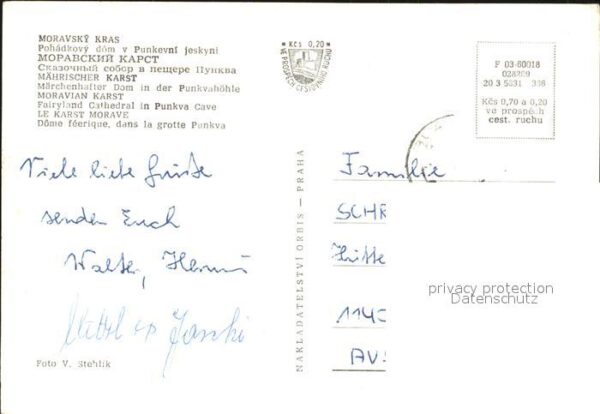 MORAVSKÝ KRAS
Pohádkový dóm v Punkevní jeskyni
МОРАВСКИЙ КАРСТ
Сказочный собор в пещере Пунква
MÄHRISCHER KARST
Märchenhafter Dom in der Punkvahöhle
MORAVIAN KARST
Fairyland Cathedral in Punkva Cave
LE KARST MORAVE
Dôme féerique, dans la grotte Punkva
Kčs 0,20
VE PROSPĚCH CESTOVNÍHO RUCHU
F 03-60018
028209
20 3 5331 306
Kčs 0,70 a 0,20
ve prospěch
cest. ruchu
Viele liebe Grüße
senden Euch
Walter,
Foto V. Stehlík
NAKLADATELSTVÍ ORBIS — PRAHA
Familie
SCHR
Hütte
114
AV
privacy protection
Datenschutz